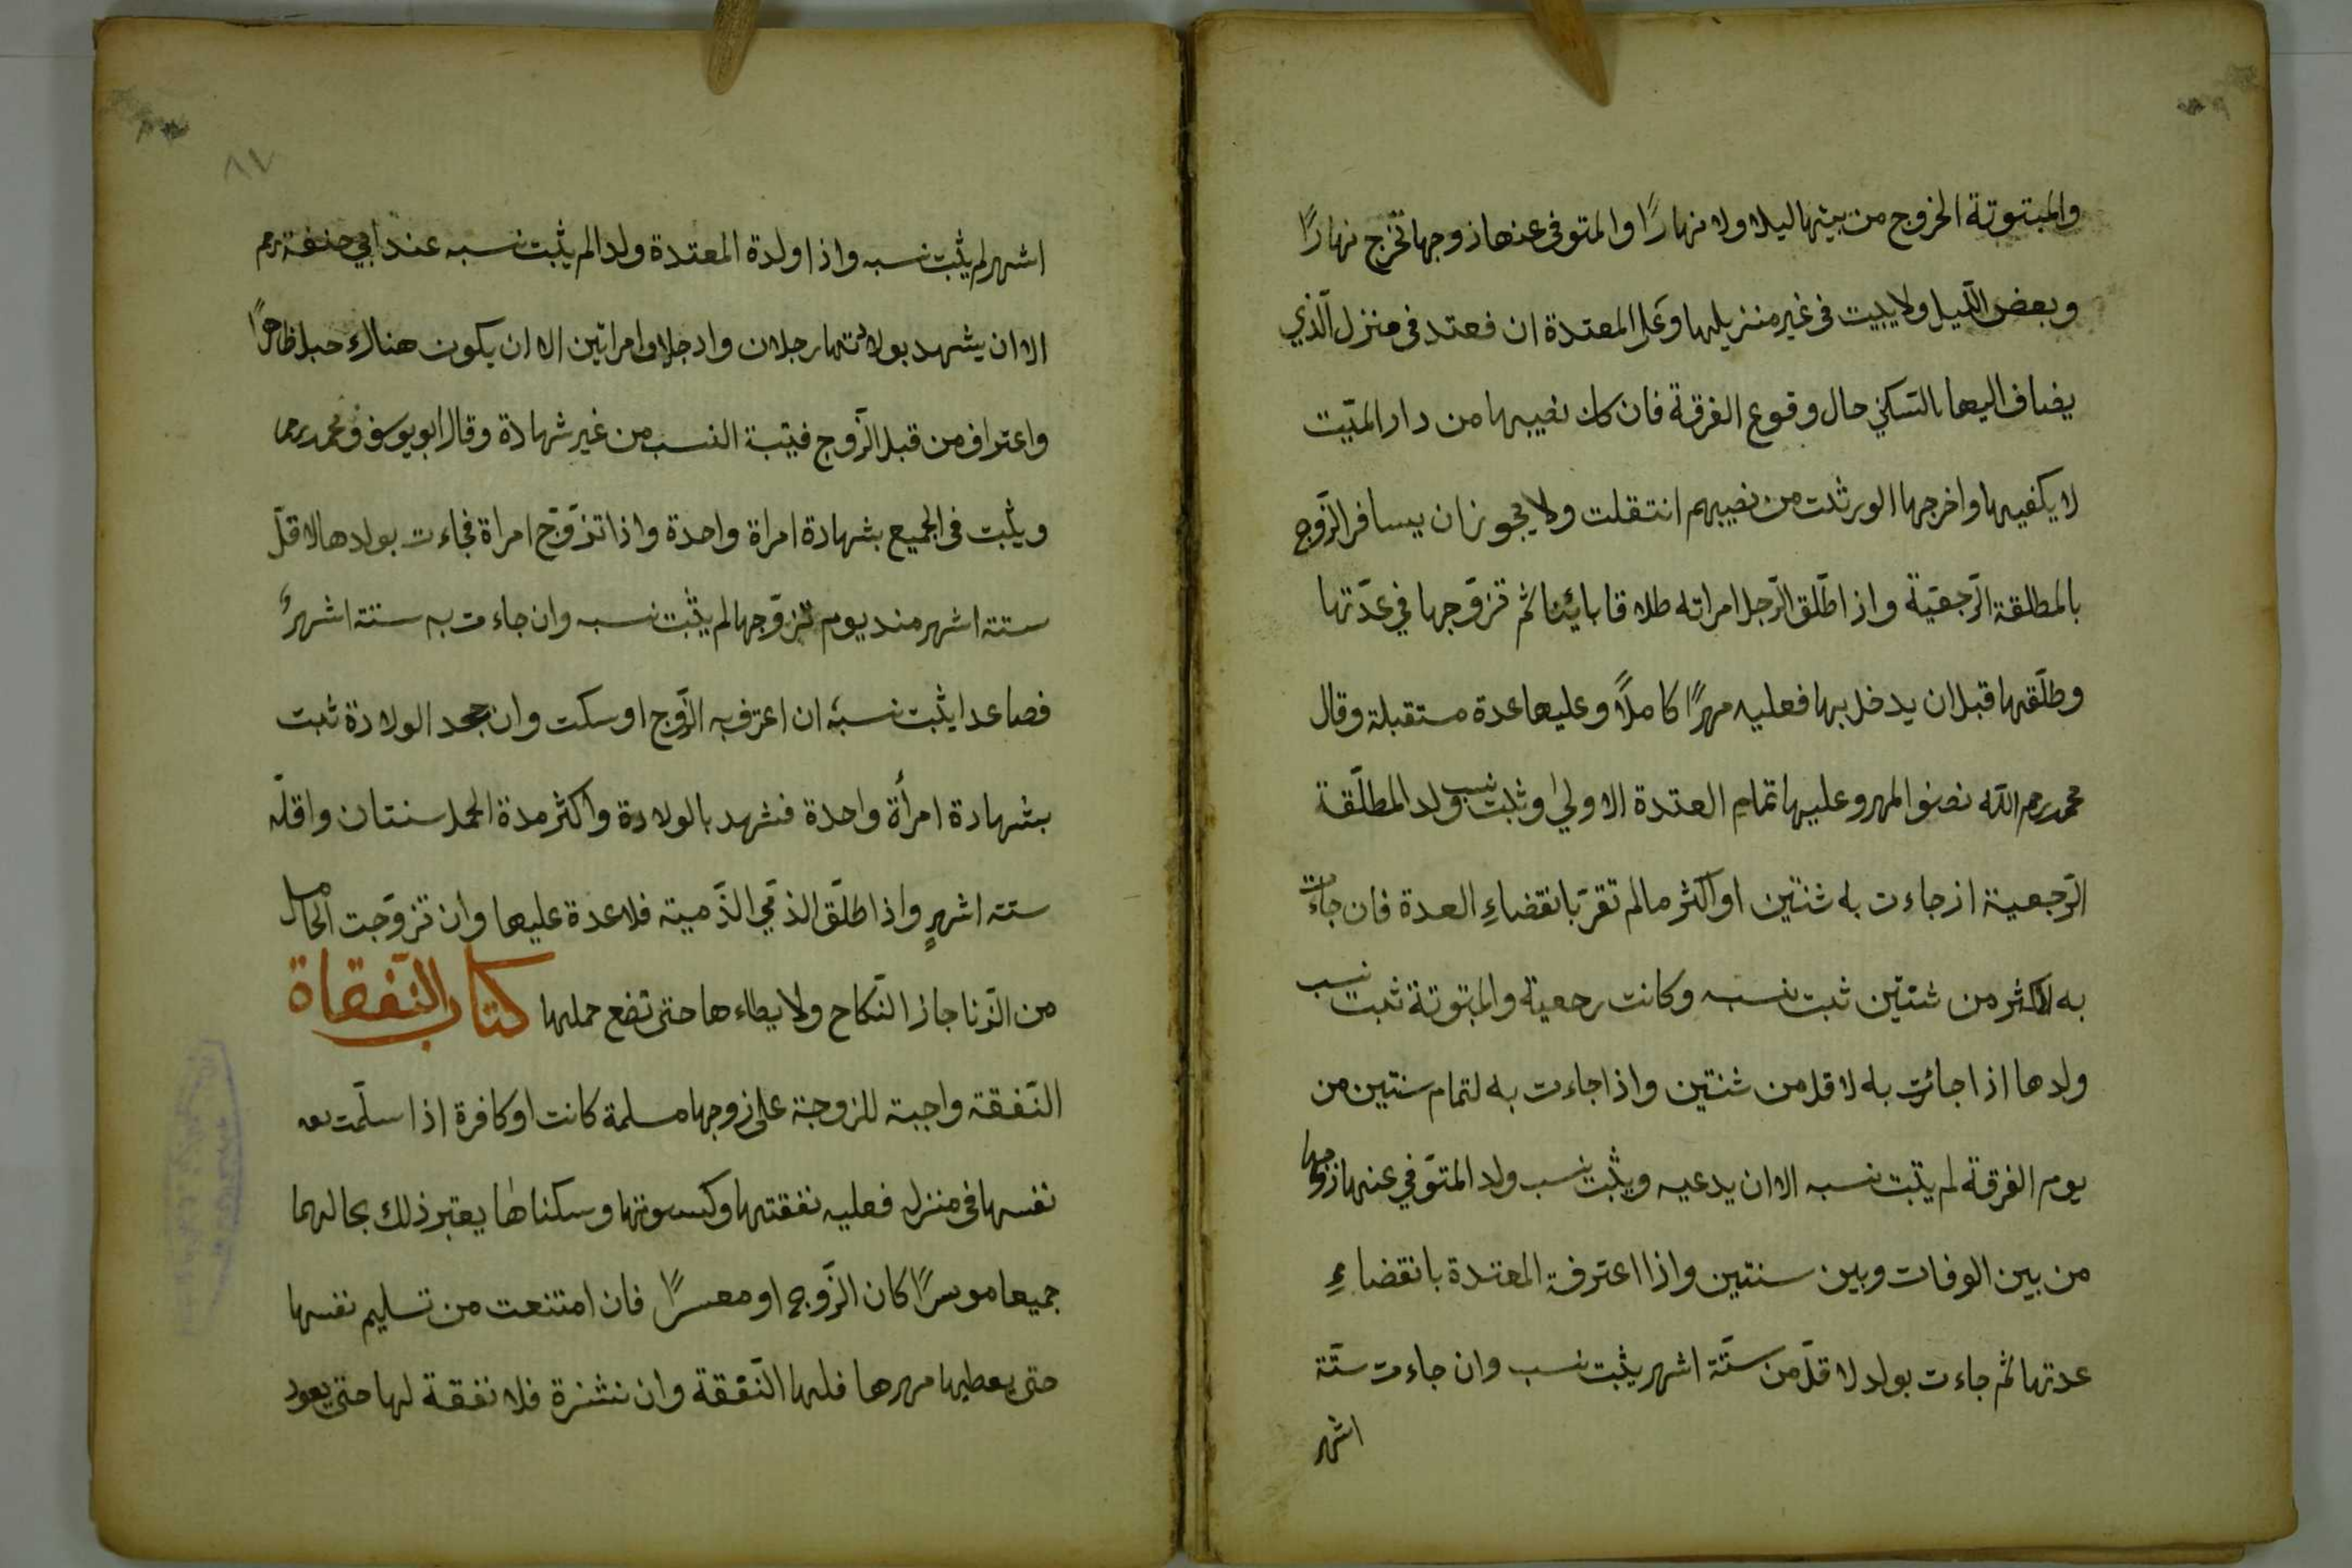 والمبتوتة الخروج من بيتها ليلا ولا نهارًا والمتوفى عنها زوجها تخرج نهارًا
وبعض اللّيل ولا يبيت فى غير منزيلها وعلى المعتدة ان فعتد فى منزل الّذي
يضاف اليها بالسّكني حال وقوع الفرقة فان كان نصيبها من دار الميّت
لا يكفيها واخرجها الورثت من نصيبهم انتقلت ولا يجوز ان يسافر الزّوج
بالمطلقة الرّجعيّة واذ اطّلق الرّجل امراته طلاقا بايئنا ثم تزوّجها في عدّتها
وطلّقها قبل ان يدخل بها فعليه مهرًا كاملًا وعليها عدة مستقبلة وقال
محمد رحم الله نصف المهر وعليها تمام العتدة الاولي وثبت نسب ولد المطلّقة
الرّجعية اذ جاءت به شنتين او اكثر ما لم تقرّ بانقضاءِ العدة فان جاءت
به لاكثر من شنتين ثبت نسبه وكانت رجعية والمبتوتة ثبت نسب
ولدها اذا جائت به لاقل من شنتين واذا جاءت به لتمام سنتين من
يوم الفرقة لم يثبت نسبه الا ان يدعيه ويثبت نسب ولد المتوّفي عنها زوجها
من بين الوفات وبين سنتين واذا اعترفة المعتدة بانقضاءِ
عدتها ثم جاءت بولد لاقلّ من ستّة اشهر يثبت نسب وان جاءت ستّة
اشهر
٨٧
اشهر لم يثبت نسبه واذا ولدة المعتدة ولدا لم يثبت نسبه عند ابي حنفة رحم
الا ان يشهد بولادتها رجلان وارجلا وامراتين الا ان يكون هناك حبل ظاهرًا
واعتراف من قبل الزّوج فيتبة النسب من غير شهادة وقال ابو يوسف ومحمد رحم
ويثبت فى الجميع بشهادة امراة واحدة واذا تزوّج امراة فجاءت بولدها لاقلّ
ستة اشهر منذ يوم تزوّجها لم يثبت نسبه وان جاءت به ستة اشهر و
فصاعدا يثبت نسبه ان اعترف به الزّوج او سكت وان جحد الولادة ثبت
بشهادة امرأة واحدة فشهد بالولادة واكثر مدة الحمل سنتان واقلّه
ستة اشهرٍ واذا طلّق الذمّي الذّمية فلا عدة عليها وان تزوّجت الحامل
من الزّنا جاز النّكاح ولا يطاءها حتى تضع حملها كتاب النّفقاة
النّفقة واجبة للزوجة على زوجها مسلمة كانت او كافرة اذا سلّمت
نفسها فى منزله فعليه نفقتها وكسوتها وسكناها يعتبر ذلك بحالهما
جميعا موسرًا كان الزّوج او معسرًا فان امتنعت من تسليم نفسها
حتى يعطيها مهرها فلها النّفقة وان نشزة فلا نفقة لها حتى يعود